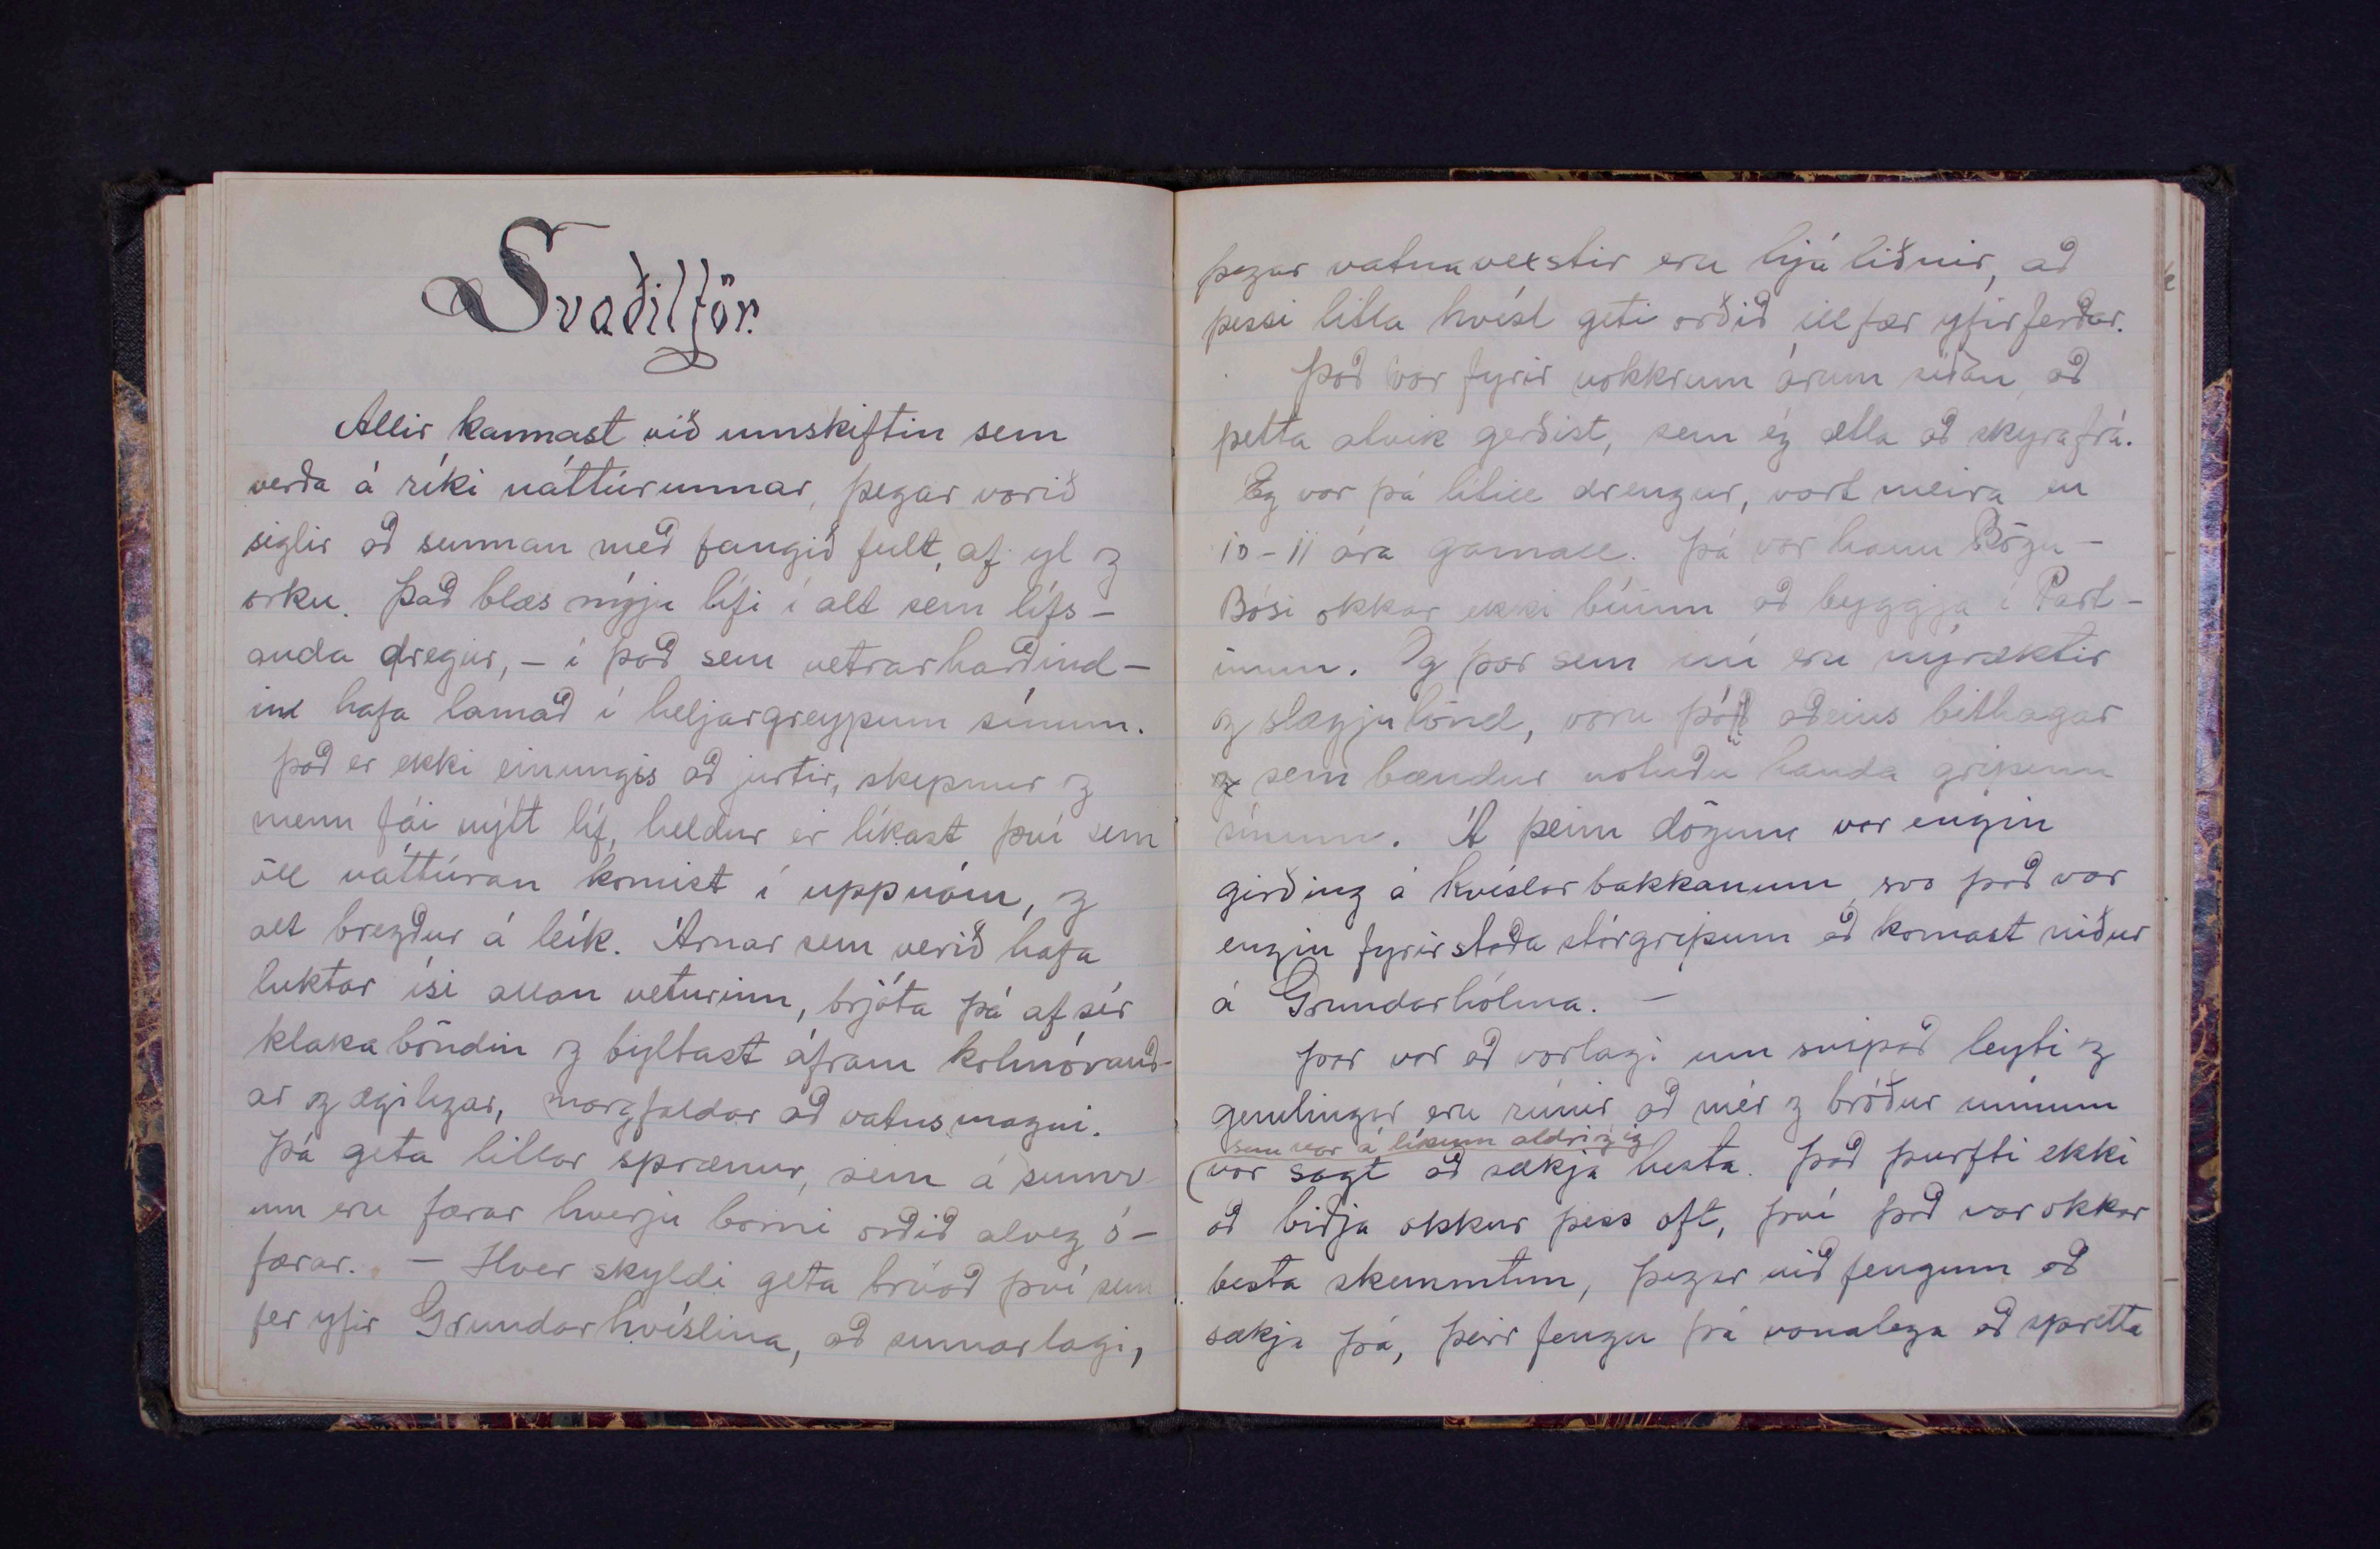 Svaðilför.
Allir kannast við umskiftin sem
verða á ríki náttúrunnar, þegar vorið
siglir að sunnan með fangið fult, af yl og
orku. Það blæs nýju lífi í alt sem lífs-
anda dregur, - í það sem vetrarharðind-
in hafa lamað í heljargreypum sínum.
það er ekki einungis að jurtir, skepnur og
menn fái nýtt líf, heldur er líkast því sem
öll náttúran komist í uppnám, og
alt bregður á leik. Árnar sem verið hafa
luktar ísi allan veturinn, brjóta þá af sér
klakaböndin og byltast áfram kolmórauð-
ar og ægilegar, margfaldar að vatnsmagni.
Þá geta litlar sprænur, sem á sumr-
um eru færar hverju barni orðið alveg ó-
færar. - Hver skyldi geta trúað því sem
fer yfir Grundarkvíslina, að sumarlagi,
þegar vatnavextir eru hjá liðnir, að
þessi litla kvísl geti orðið illfær yfirferðar.
Það var fyrir nokkrum árum síðan, að
þetta atvik gerðist, sem ég ætla að skyra frá.
Ég var þá lítill drengur, vart meira en
10-11 ára gamall. Þá var hann Bögu-
Bósi okkar ekki búinn að byggja í Part-
inum. Og þar sem nú eru nýræktir
og slægjulönd, voru þá aðeins bithagar
sem bændur notuðu handa gripum
sínum. Á þeim dögum var engin
girðing á kvíslarbakkanum, svo það var
engin fyrirstaða stórgripum að komast niður
á Grundarhólma. -
Þar var að vorlagi um svipað leyti og
gemlingar eru rúnir að mér og bróður mínum
sem var á líkum aldri og ég
var sagt að sækja hesta. Það þurfti ekki
að biðja okkur þess oft, því það var okkar
besta skemmtun, þegar við fengum að
sækja þá, þeir fengu þá vanalega að spretta